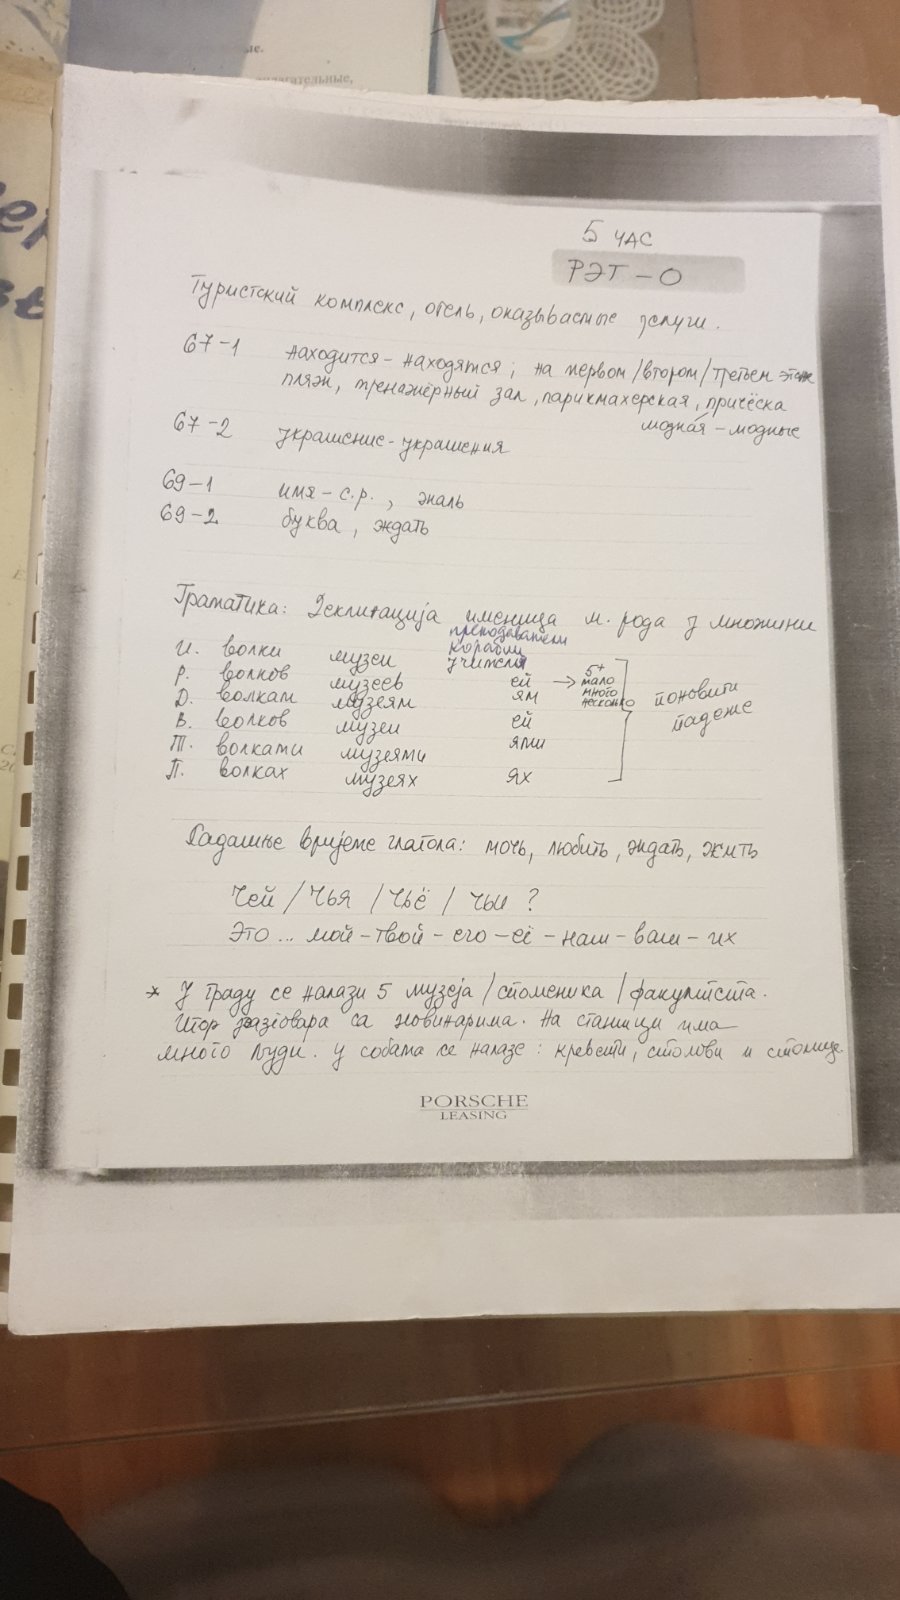 ые.
лагательные,
5 ЧАС
РЭТ - О
Туристский комплекс, отель, оказываемые услуги.
67-1 находится - находятся; на первом/втором/третьем этаже
пляж, тренажёрный зал, парикмахерская, причёска
модная - модные
67-2 украшение - украшения
69-1 имя - с.р., жаль
69-2 буква, ждать
Граматика: Деклинација именица м. рода у множини
преподаватели
корабли
И. волки музеи учителя
Р. волков музеев ей → 5+ мало много несколько
Д. волкам музеям ям
В. волков музеи ей
Т. волками музеями ями
П. волках музеях ях
поновити падеже
Садашње вријеме глагола: мочь, любить, ждать, жить
Чей / Чья / Чьё / Чьи ?
Это ... мой - твой - его - её - наш - ваш - их
* У граду се налази 5 музеја / споменика / факултета.
Игор разговара са новинарима. На станици има
много људи. У собама се налазе: кревети, столови и столице
PORSCHE
LEASING